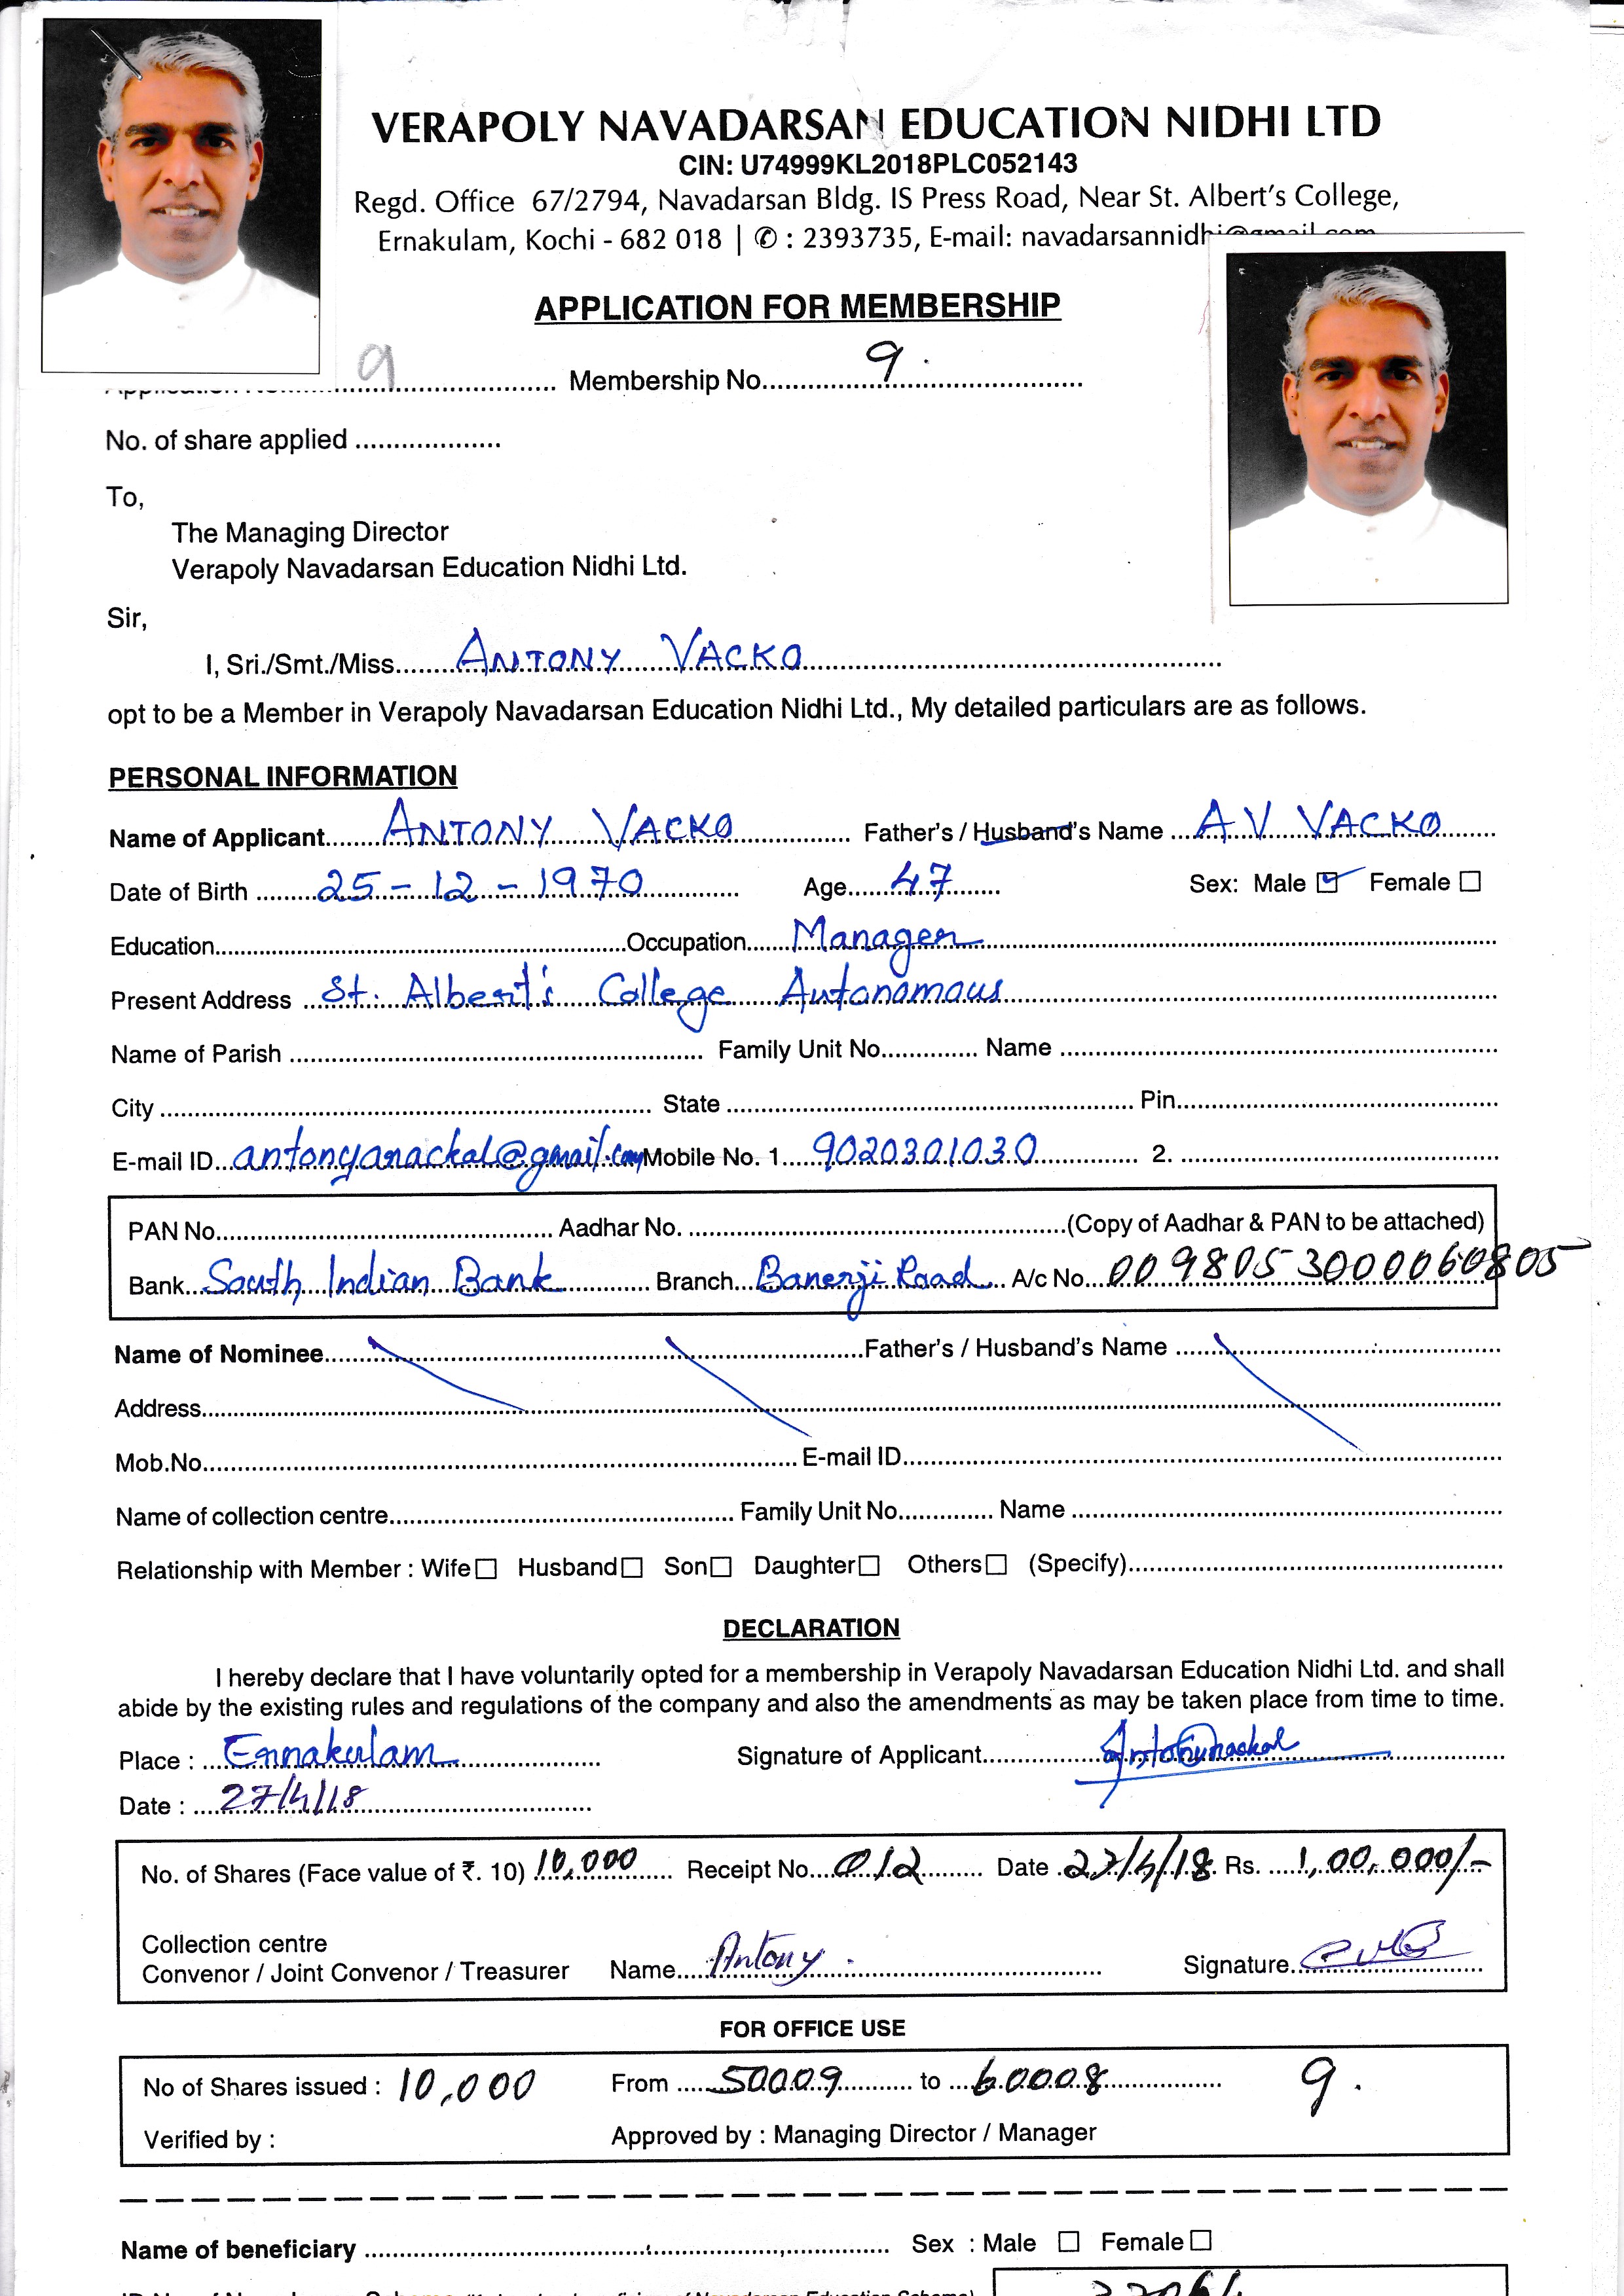 VERAPOLY NAVADARSAN EDUCATION NIDHI LTD
CIN: U74999KL2018PLC052143
Regd. Office 67/2794, Navadarsan Bldg. IS Press Road, Near St. Albert's College,
Ernakulam, Kochi - 682 018 | ✆ : 2393735, E-mail: navadarsannidhi@gmail.com
APPLICATION FOR MEMBERSHIP
9 Membership No. 9.
No. of share applied
To,
The Managing Director
Verapoly Navadarsan Education Nidhi Ltd.
Sir,
I, Sri./Smt./Miss. ANTONY VACKO
opt to be a Member in Verapoly Navadarsan Education Nidhi Ltd., My detailed particulars are as follows.
PERSONAL INFORMATION
Name of Applicant ANTONY VACKO Father's / Husband's Name A V VACKO
Date of Birth 25-12-1970 Age 47 Sex: Male ☑ Female ☐
Education Occupation Manager
Present Address St. Albert's College Autonomous
Name of Parish Family Unit No. Name
City State Pin
E-mail ID antonyarackal@gmail.com Mobile No. 1 9020301030 2.
PAN No. Aadhar No. (Copy of Aadhar & PAN to be attached)
Bank South Indian Bank Branch Banerji Road A/c No. 0098053000060805
Name of Nominee Father's / Husband's Name
Address
Mob.No E-mail ID
Name of collection centre Family Unit No. Name
Relationship with Member : Wife ☐ Husband ☐ Son ☐ Daughter ☐ Others ☐ (Specify)
DECLARATION
I hereby declare that I have voluntarily opted for a membership in Verapoly Navadarsan Education Nidhi Ltd. and shall
abide by the existing rules and regulations of the company and also the amendments as may be taken place from time to time.
Place : Ernakulam Signature of Applicant
Date : 27/4/18
No. of Shares (Face value of ₹. 10) 10,000 Receipt No. 012 Date 27/4/18 Rs. 1,00,000/-
Collection centre
Convenor / Joint Convenor / Treasurer Name Antony. Signature
FOR OFFICE USE
No of Shares issued : 10,000 From 50009 to 60008 9.
Verified by : Approved by : Managing Director / Manager
Name of beneficiary Sex : Male ☐ Female ☐